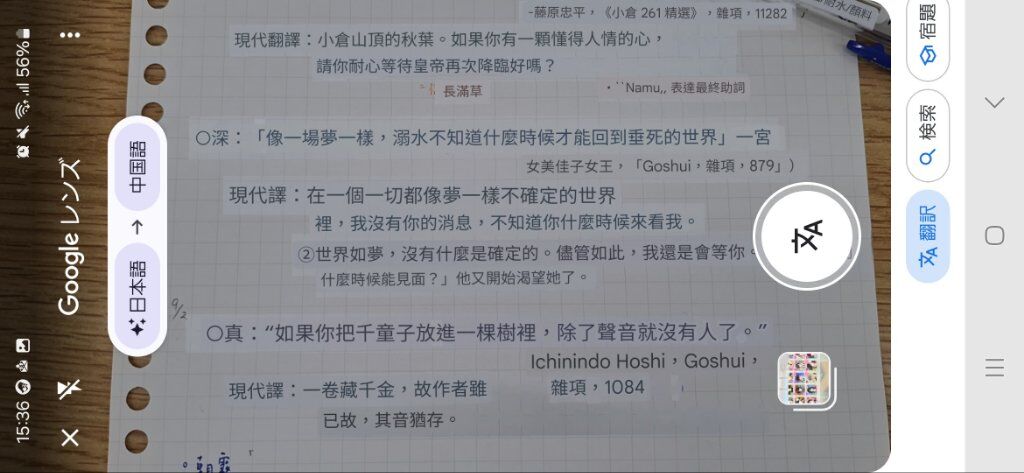 15:36
56%
Google レンズ
日本語 → 中国語
-藤原忠平，《小倉 261 精選》，雜項，11282
耐水/顏料
現代翻譯：小倉山頂的秋葉。如果你有一顆懂得人情的心，
請你耐心等待皇帝再次降臨好嗎？
長滿草
・``Namu,, 表達最終助詞
○深：「像一場夢一樣，溺水不知道什麼時候才能回到垂死的世界」一宮
女美佳子女王，「Goshui，雜項，879」）
現代譯：在一個一切都像夢一樣不確定的世界
裡，我沒有你的消息，不知道你什麼時候來看我。
②世界如夢，沒有什麼是確定的。儘管如此，我還是會等你。
什麼時候能見面？」他又開始渴望她了。
9/2
○真：“如果你把千童子放進一棵樹裡，除了聲音就沒有人了。”
Ichinindo Hoshi，Goshui，
雜項，1084
現代譯：一卷藏千金，故作者雖
已故，其音猶存。
翻訳
検索
宿題